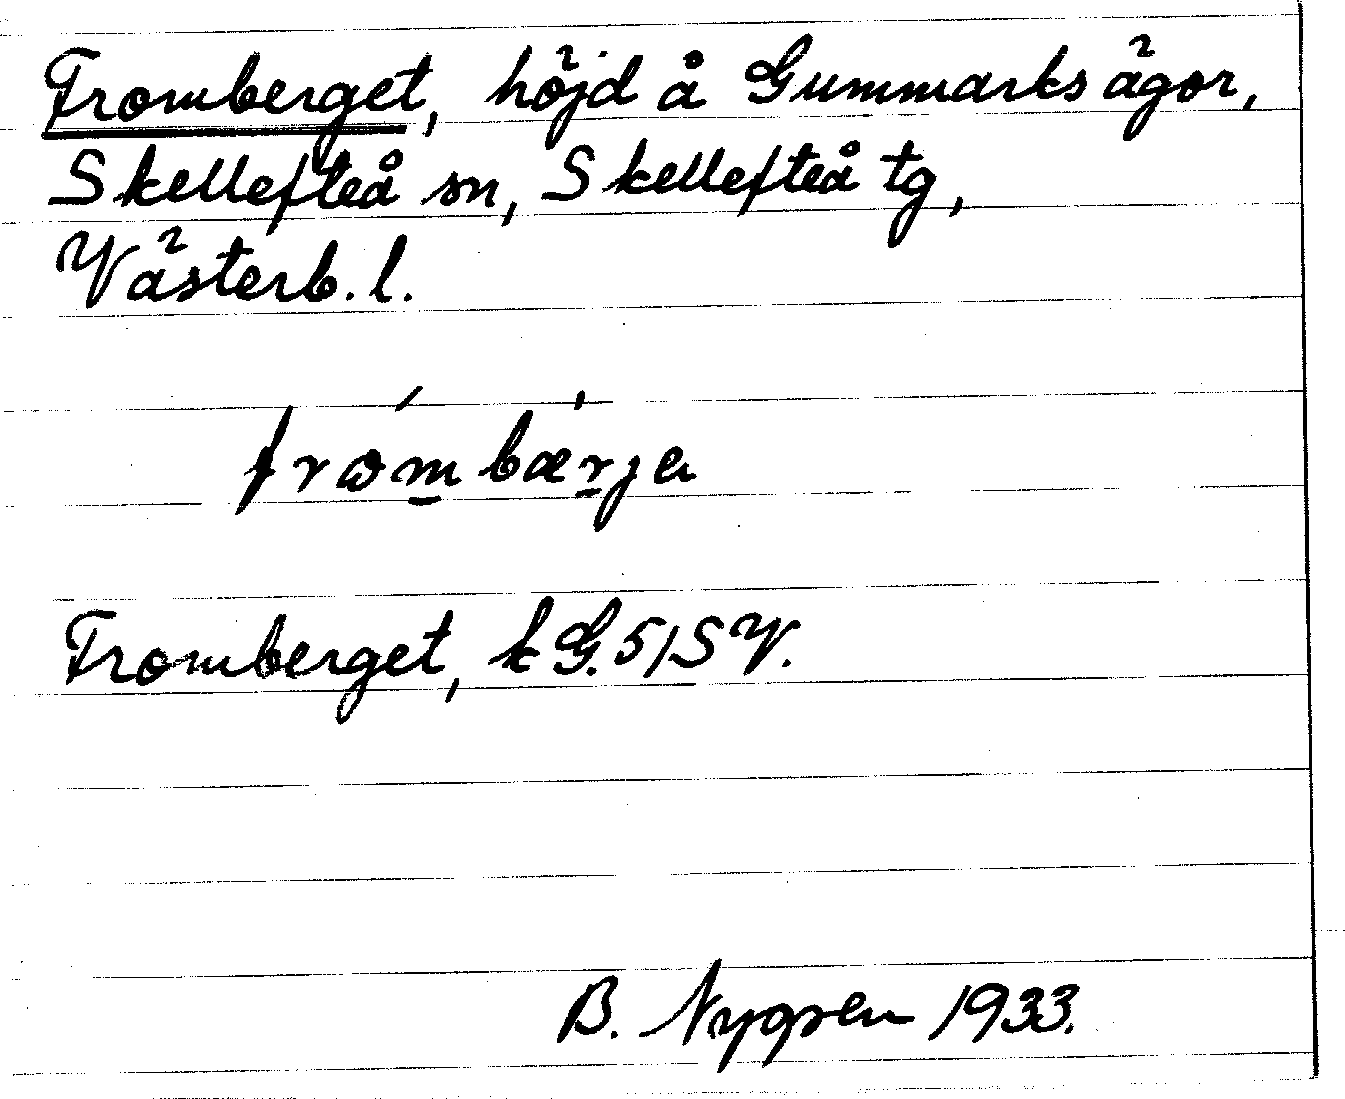 Fromberget, höjd å Gummarks ägor,
Skellefteå sn, Skellefteå tg,
Västerb. l.
fròmbærja
Fromberget, kG. 5/SV.
B. Nygren 1933.